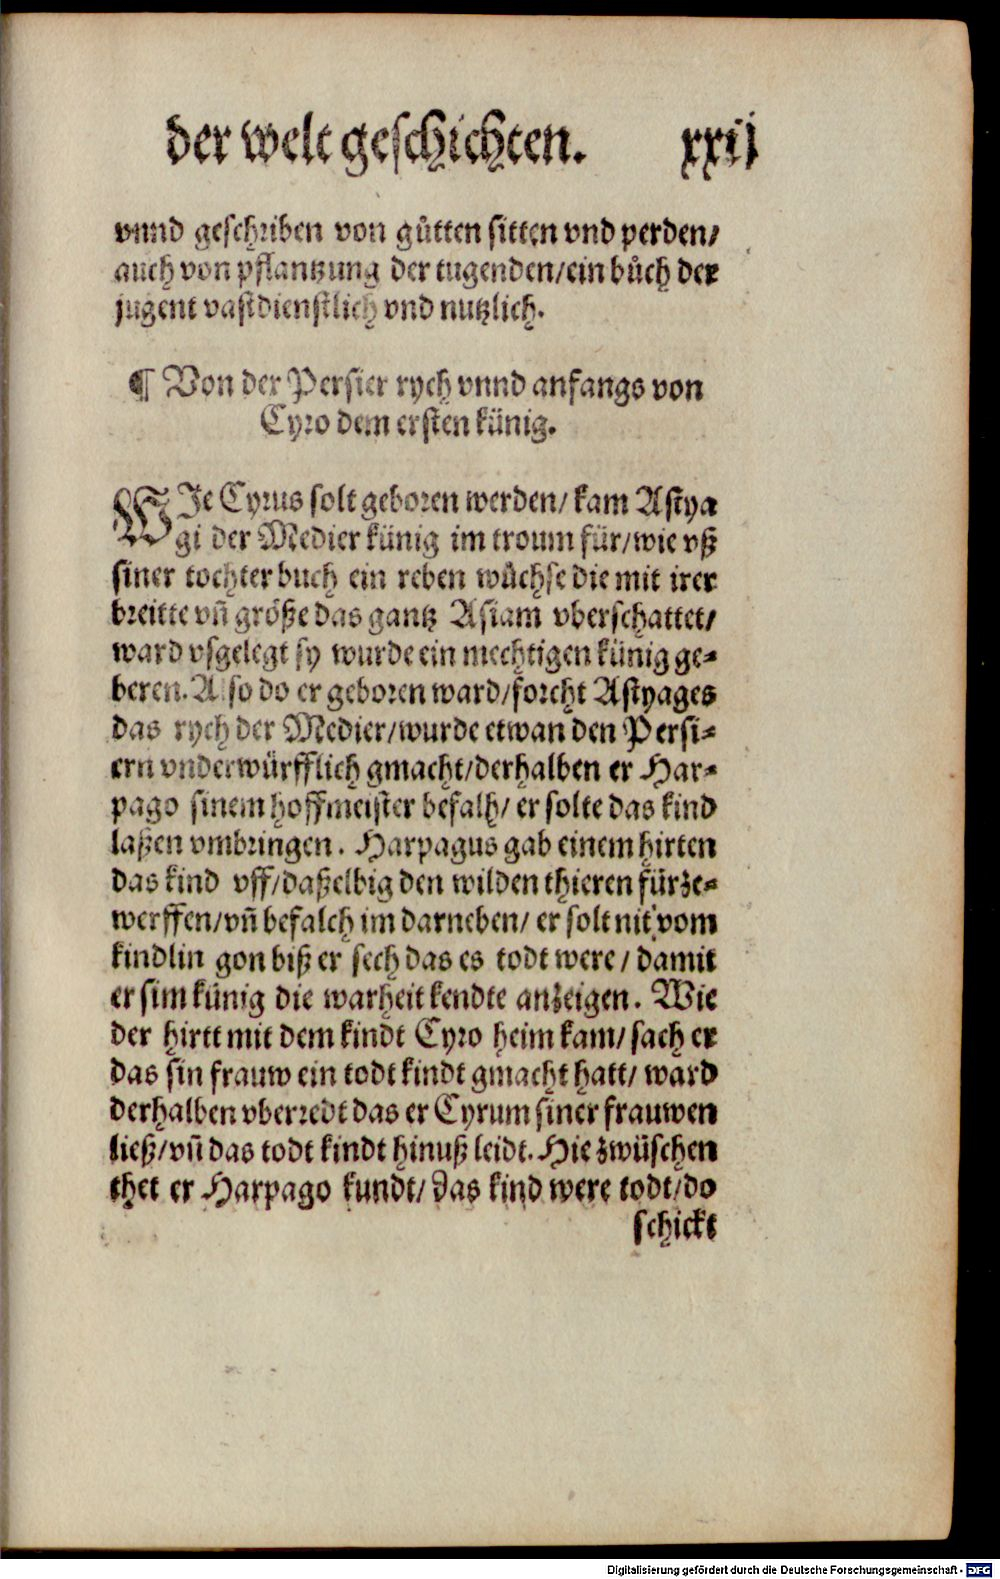 der welt geschichten. xxij
vnnd geschriben von gůtten sitten vnd perden/
auch von pflantzung der tugenden/ein bůch der
jugent vastdienstlich vnd nutzlich.
¶ Von der Persier rych vnnd anfangs von
Cyro dem ersten künig.
WJe Cyrus solt geboren werden/ kam Astya
gi der Medier künig im troum für/wie vß
siner tochter buch ein reben wůchse die mit irer
breitte vñ größe das gantz Asiam vberschattet/
ward vsgelegt sy wurde ein mechtigen künig ge⸗
beren. Also do er geboren ward/forcht Astyages
das rych der Medier/wurde etwan den Persi⸗
ern vnderwürfflich gmacht/derhalben er Har⸗
pago sinem hoffmeister befalh/ er solte das kind
laßen vmbringen. Harpagus gab einem hirten
das kind vff/daßelbig den wilden thieren fürze⸗
werffen/vñ befalch im darneben/ er solt nit vom
kindlin gon biß er sech das es todt were/ damit
er sim künig die warheit kendte anzeigen. Wie
der hirtt mit dem kindt Cyro heim kam/ sach er
das sin frauw ein todt kindt gmacht hatt/ ward
derhalben vberredt das er Cyrum siner frauwen
ließ/vñ das todt kindt hinuß leidt. Hie zwüschen
thet er Harpago kundt/ das kind were todt/do
schickt
Digitalisierung gefördert durch die Deutsche Forschungsgemeinschaft - DFG